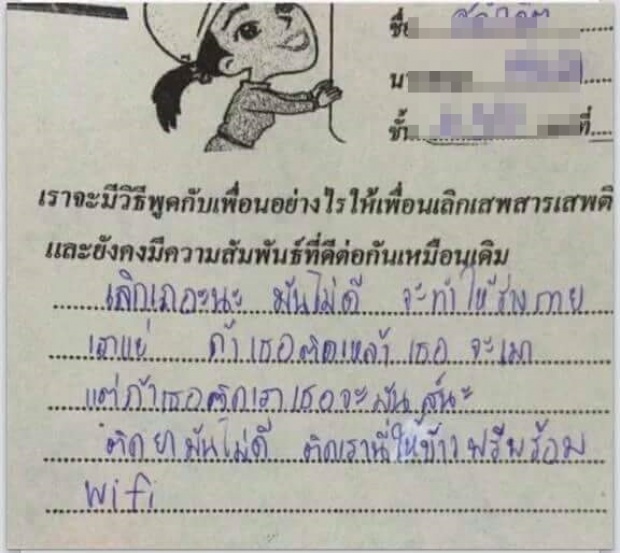 ชื่อ
ชั้น ที่
เราจะมีวิธีพูดกับเพื่อนอย่างไรให้เพื่อนเลิกเสพสารเสพติ
และยังคงมีความสัมพันธ์ที่ดีต่อกันเหมือนเดิม
เลิกเถอะนะ มันไม่ดี จะทำให้ร่างกาย
เราแย่ ถ้าเธอติดเหล้า เธอ จะเมา
แต่ถ้าเธอติดเราเธอจะมัน ส์นะ
ติดยามันไม่ดี ติดเรานี่ให้ข้าวฟรีพร้อม
wifi